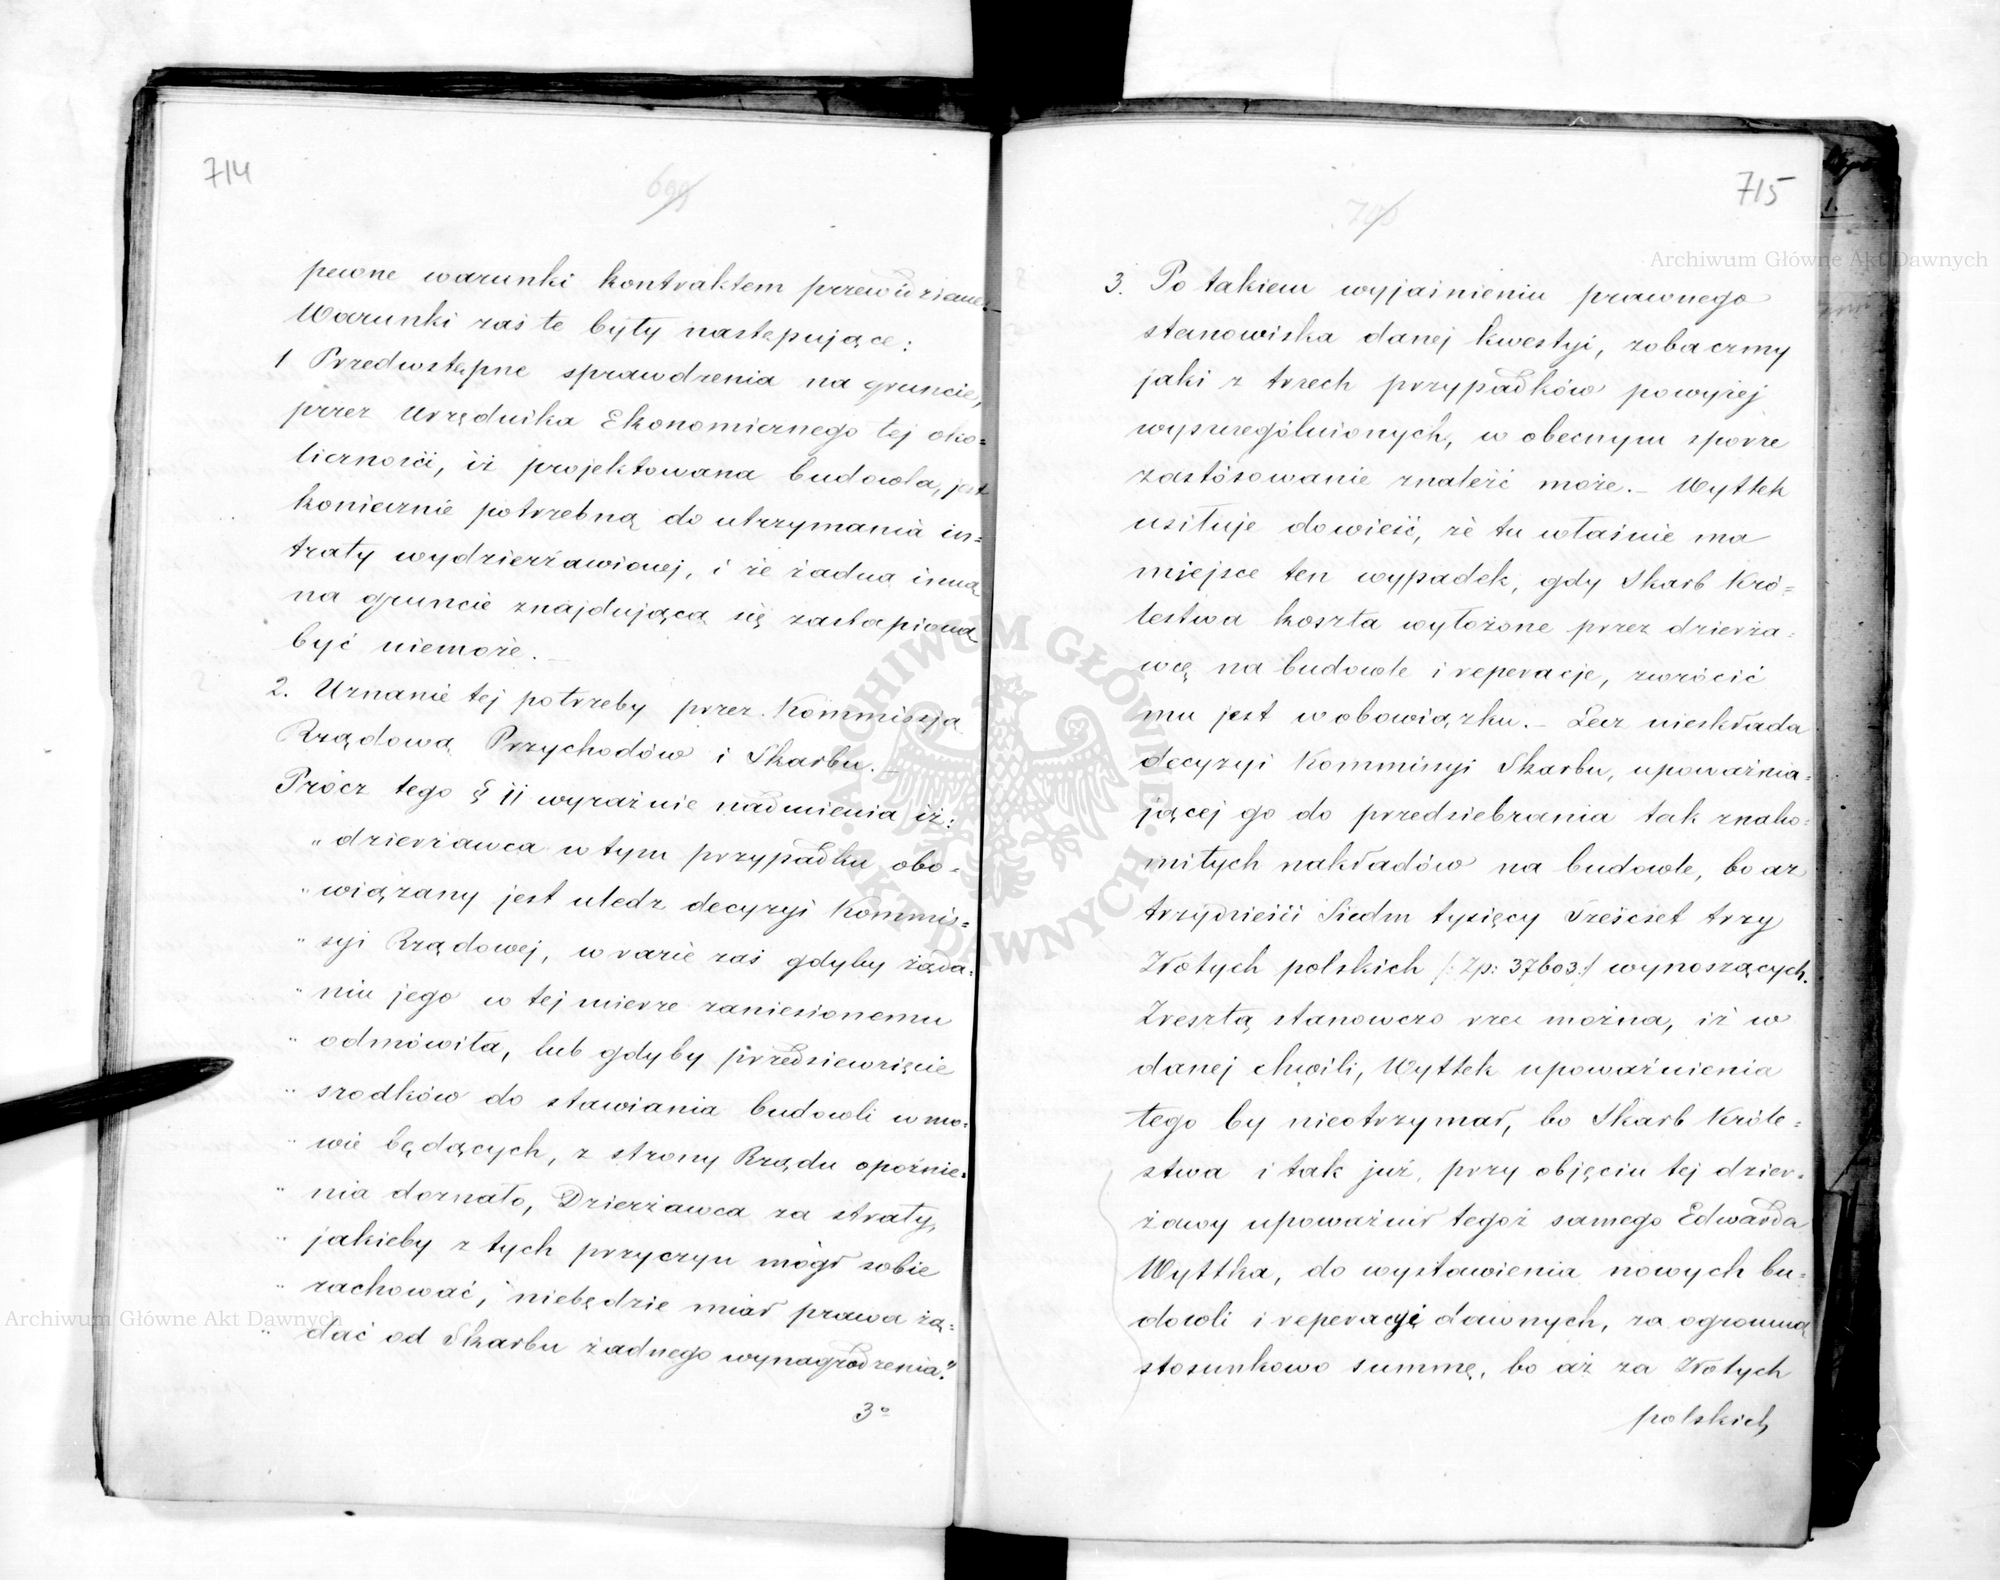 714
699
pewne warunki kontraktem przewidziane.
Warunki zaś te były następujące:
1 Przedwstępne sprawdzenia na gruncie,
przez Urzędnika Ekonomicznego tej oko=
liczności, iż projektowana budowla, jest
koniecznie potrzebną do utrzymania in=
traty wydzierżawionej, i że żadną inną
na gruncie znajdującą się zastąpioną
być niemoże. _
2. Uznanie tej potrzeby przez Kommissją
Rządową Przychodów i Skarbu. _
Prócz tego § 11 wyraźnie nadmienia iż:
„ dzierżawca w tym przypadku obo=
„ wiązany jest uledz decyzyi Kommis=
„ syi Rządowej, w razie zaś gdyby żąda=
„ niu jego w tej mierze zaniesionemu
„ odmówiła, lub gdyby przedsiewzięcie
„ srodków do stawiania budowli w mo=
„ wie będących, z strony Rządu opóźnie=
„ nia doznało, Dzierżawca za straty,
„ jakieby z tych przyczyn mógł sobie
„ rachować, niebędzie miał prawa żą=
„ dać od Skarbu żadnego wynagrodzenia."
3º
715
700
3. Po takiem wyjaśnieniu prawnego
stanowiska danej kwestyi, zobaczmy
jaki z trzech przypadków powyżej
wyszczególnionych, w obecnym sporze
zastósowanie znaleźć może. _ Wyttek
usiłuje dowieść, że tu właśnie ma
miejsce ten wypadek, gdy Skarb Kró=
lestwa koszta wyłożone przez dzierża=
wcę na budowle i reperacje, zwrócić
mu jest w obowiązku. _ Lecz nieskłada
decyzyi Kommissyi Skarbu, upoważnia=
jącej go do przedsiebrania tak znako=
mitych nakładów na budowle, bo aż
trzydzieści Siedm tysięcy Sześćset trzy
Złotych polskich /: Zp: 37603 :/ wynoszących.
Zresztą stanowczo rzec można, iż w
danej chwili, Wyttek upoważnienia
tego by nieotrzymał, bo Skarb Króle=
stwa i tak już, przy objęciu tej dzier=
żawy upoważnił tegoż samego Edwarda
Wyttka, do wystawienia nowych bu=
dowli i reperacyi dawnych, za ogromną
stosunkowo summę, bo aż za Złotych
polskich
Archiwum Główne Akt Dawnych
Archiwum Główne Akt Dawnych
ARCHIWUM GŁÓWNE AKT DAWNYCH